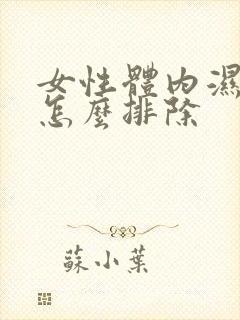 女性體內濕
怎麼排除
蘇小葉